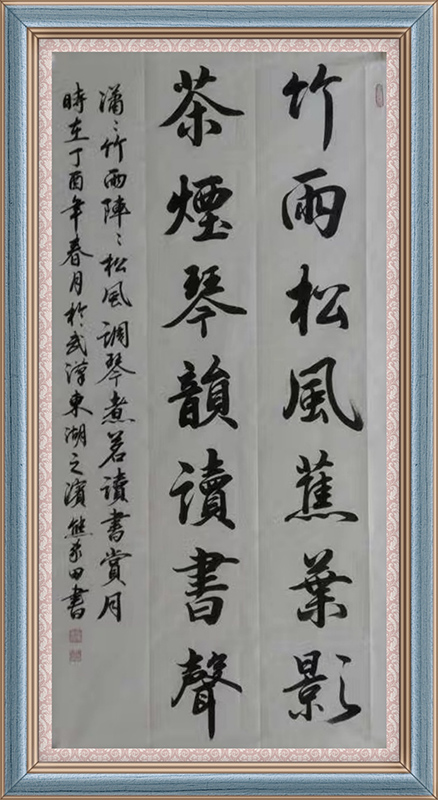 竹雨松風蕉葉影
茶煙琴韻讀書聲
瀟〻竹雨陣〻松風調琴煮茗讀書賞月
時在丁酉年春月於武漢東湖之濱熊家田書